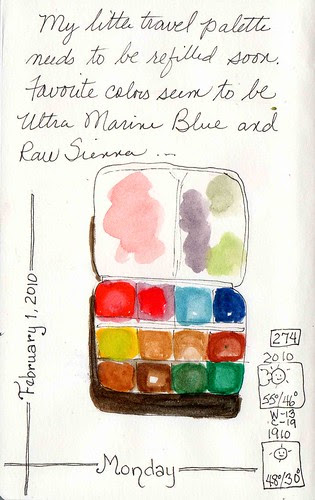 My little travel palette
needs to be refilled soon.
Favorite colors seem to be
Ultra Marine Blue and
Raw Sienna ...
February 1, 2010
274
2010
55°/46°
W-13
C-19
1910
48°/30°
Monday